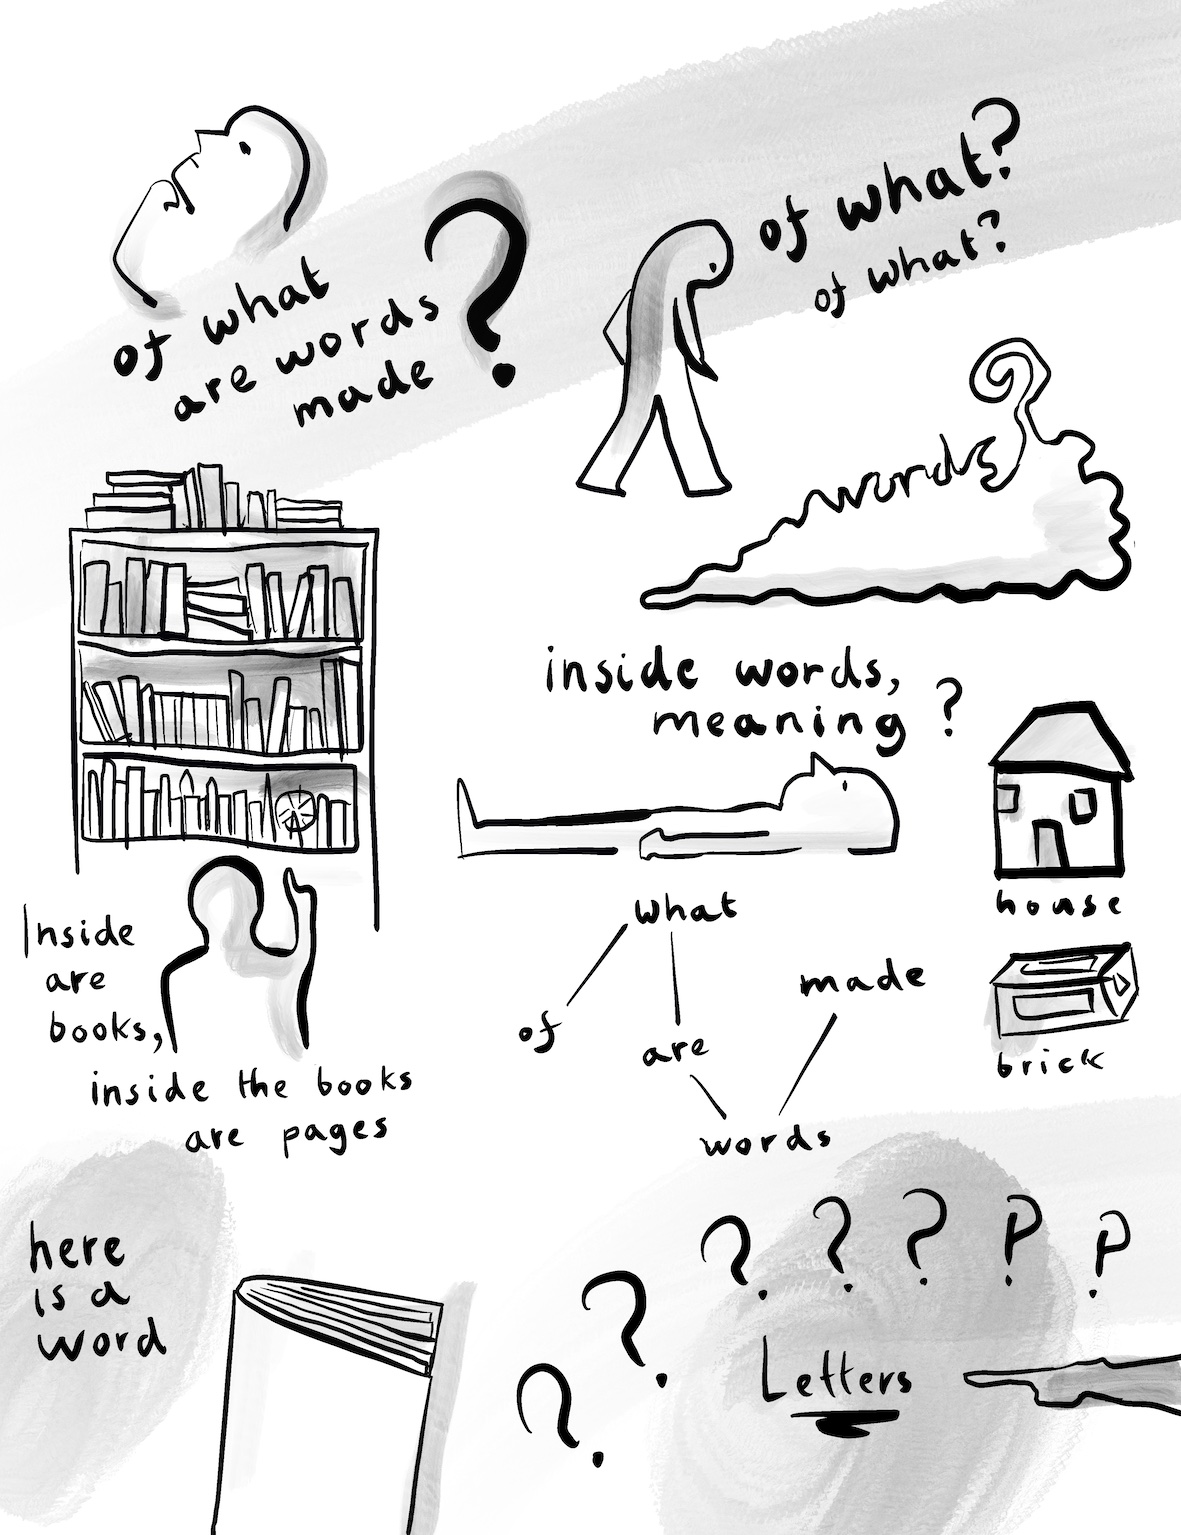 of what
are words
made ?
of what?
of what?
words
inside words,
meaning ?
house
brick
Inside
are
books,
inside the books
are pages
what
of
are
made
words
here
is a
word
? ? ? ? ? ? ?
Letters